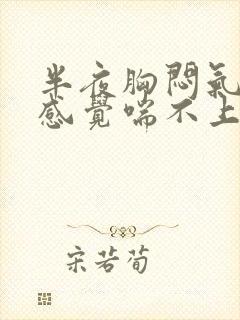 半夜胸悶氣
感覺喘不上
宋若荀